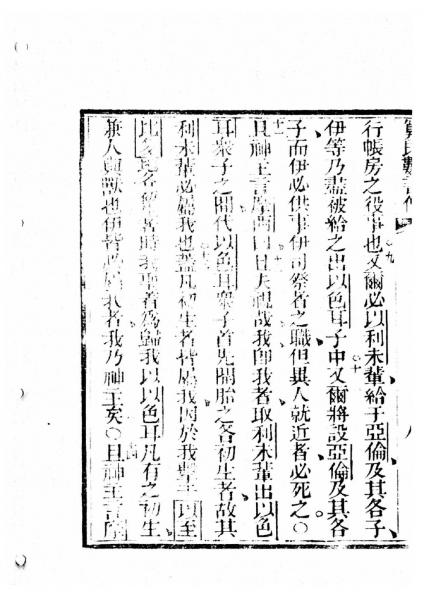 行帳房之役事也又爾必以利未輩給于亞倫及其各子
伊等乃盡被給之出以色耳子中又爾將設亞倫及其各
子而伊必供事伊司祭者之職但異人就近者必死之○
且神主言摩西曰夫視哉我卽我者取利未輩出以色
耳眾子之間代以色耳眾子首先開胎之各初生者故其
利未輩必屬我也蓋凡初生者皆屬我因於我擊至以至
比多地各初生者時我聖着為歸我以以色耳凡有之初生
兼人與獸也伊皆必屬我者我乃神主矣○且神主言摩